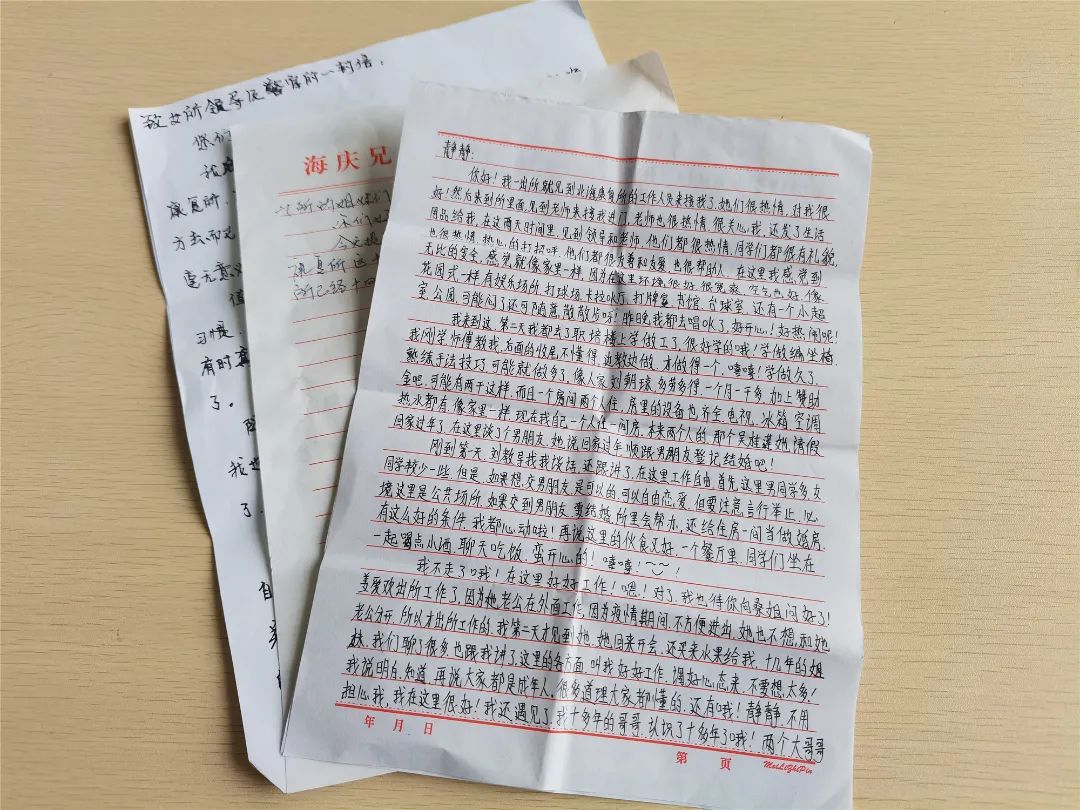 致女所领导及警官的一封信：
您们
康复所.
方法而
毫无意义
习惯.
有时真
了。
我
了.
海庆兄
今天提
康复所这
所已经十四
静静:
你好！我一出所就见到北海康复所的工作人员来接我了.她们很热情.对我很
好！然后来到所里面见到老师来接我进门.老师也很热情.很关心我.还发了生活
用品给我.在这两天时间里.见到领导和老师.他们都很热情.同学们都很有礼貌.
也很热情.热心的打招呼.他们都很友善和友爱.也很帮助人.在这里我感觉到
无比的安全.感觉就像家里一样.因为在这里环境很好.很宽爽.空气也好.像
花园式一样有娱乐场所.打球场.卡拉OK厅.打牌室.书馆.台球室.还有一个小超
室公园.可能闷了还可随意散散步呀！昨晚我都去唱OK了.好开心！好热闹呢！
我来到这第二天我都去了职培楼上学做工了.很好学的哦！学做编坐椅.
我刚学师傅教我.后面的收尾不懂得.边教边做.才做得一个.嘻嘻！学做久了.
熟练手法技巧可能就做多了.像人家刘朝琼.多劳多得.一个月一千多加上赞助
金吧.可能有两千这样.而且一个房间两个人住.房里的设备也齐全电视.冰箱.空调
热水都有.像家里一样.现在我自己一个人住一间房.本来两个人的.那个吴桂莲她请假
回家过年了.在这里谈了个男朋友.她说回家过年顺跟男朋友登记结婚吧！
刚到第一天.刘教导找我谈话.还跟讲了.在这里工作自由.首先这里男同学多女
同学较少一些.但是.如果想交男朋友是可以的.可以自由恋爱.但要注意言行举止.
境这里是公共场所.如果交到男朋友.要结婚.所里会帮办.还给住房一间当做婚房.
有这么好的条件.我都心动啦！再说这里的伙食又好.一个餐厅里.同学们坐在
一起喝点小酒.聊天吃饭.蛮开心的！嘻嘻！～～！
我不走了哦！在这里好好工作！嗯！对了.我也待你向桑姐问好了！
姜爱欢出所工作了.因为她老公在外面工作.因为疫情期间不方便进出.她也不想和她
老公分开.所以才出所工作的.我第二天才见到她.她回来开会.还买来水果给我.十几年的姐
妹.我们聊了很多也跟我讲了.这里的各方面.叫我好好工作.调好心态来.不要想太多！
我说明白.知道.再说大家都是成年人.很多道理大家都懂的.还有哦！静静.不用
担心我.我在这里很好！我还遇见了.我十多年的哥哥.认识了十多年了哦！两个大哥哥
年 月 日
第 页
MeiLiZhiPin